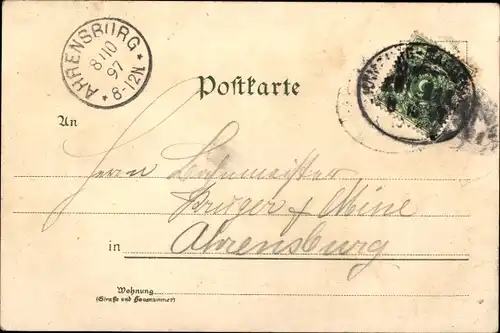 AHRENSBURG
8/10
97
* 8-12N *
Postkarte
An
Herrn
Krüger & Mine
in Ahrensburg
Wohnung
(Straße und Hausnummer)